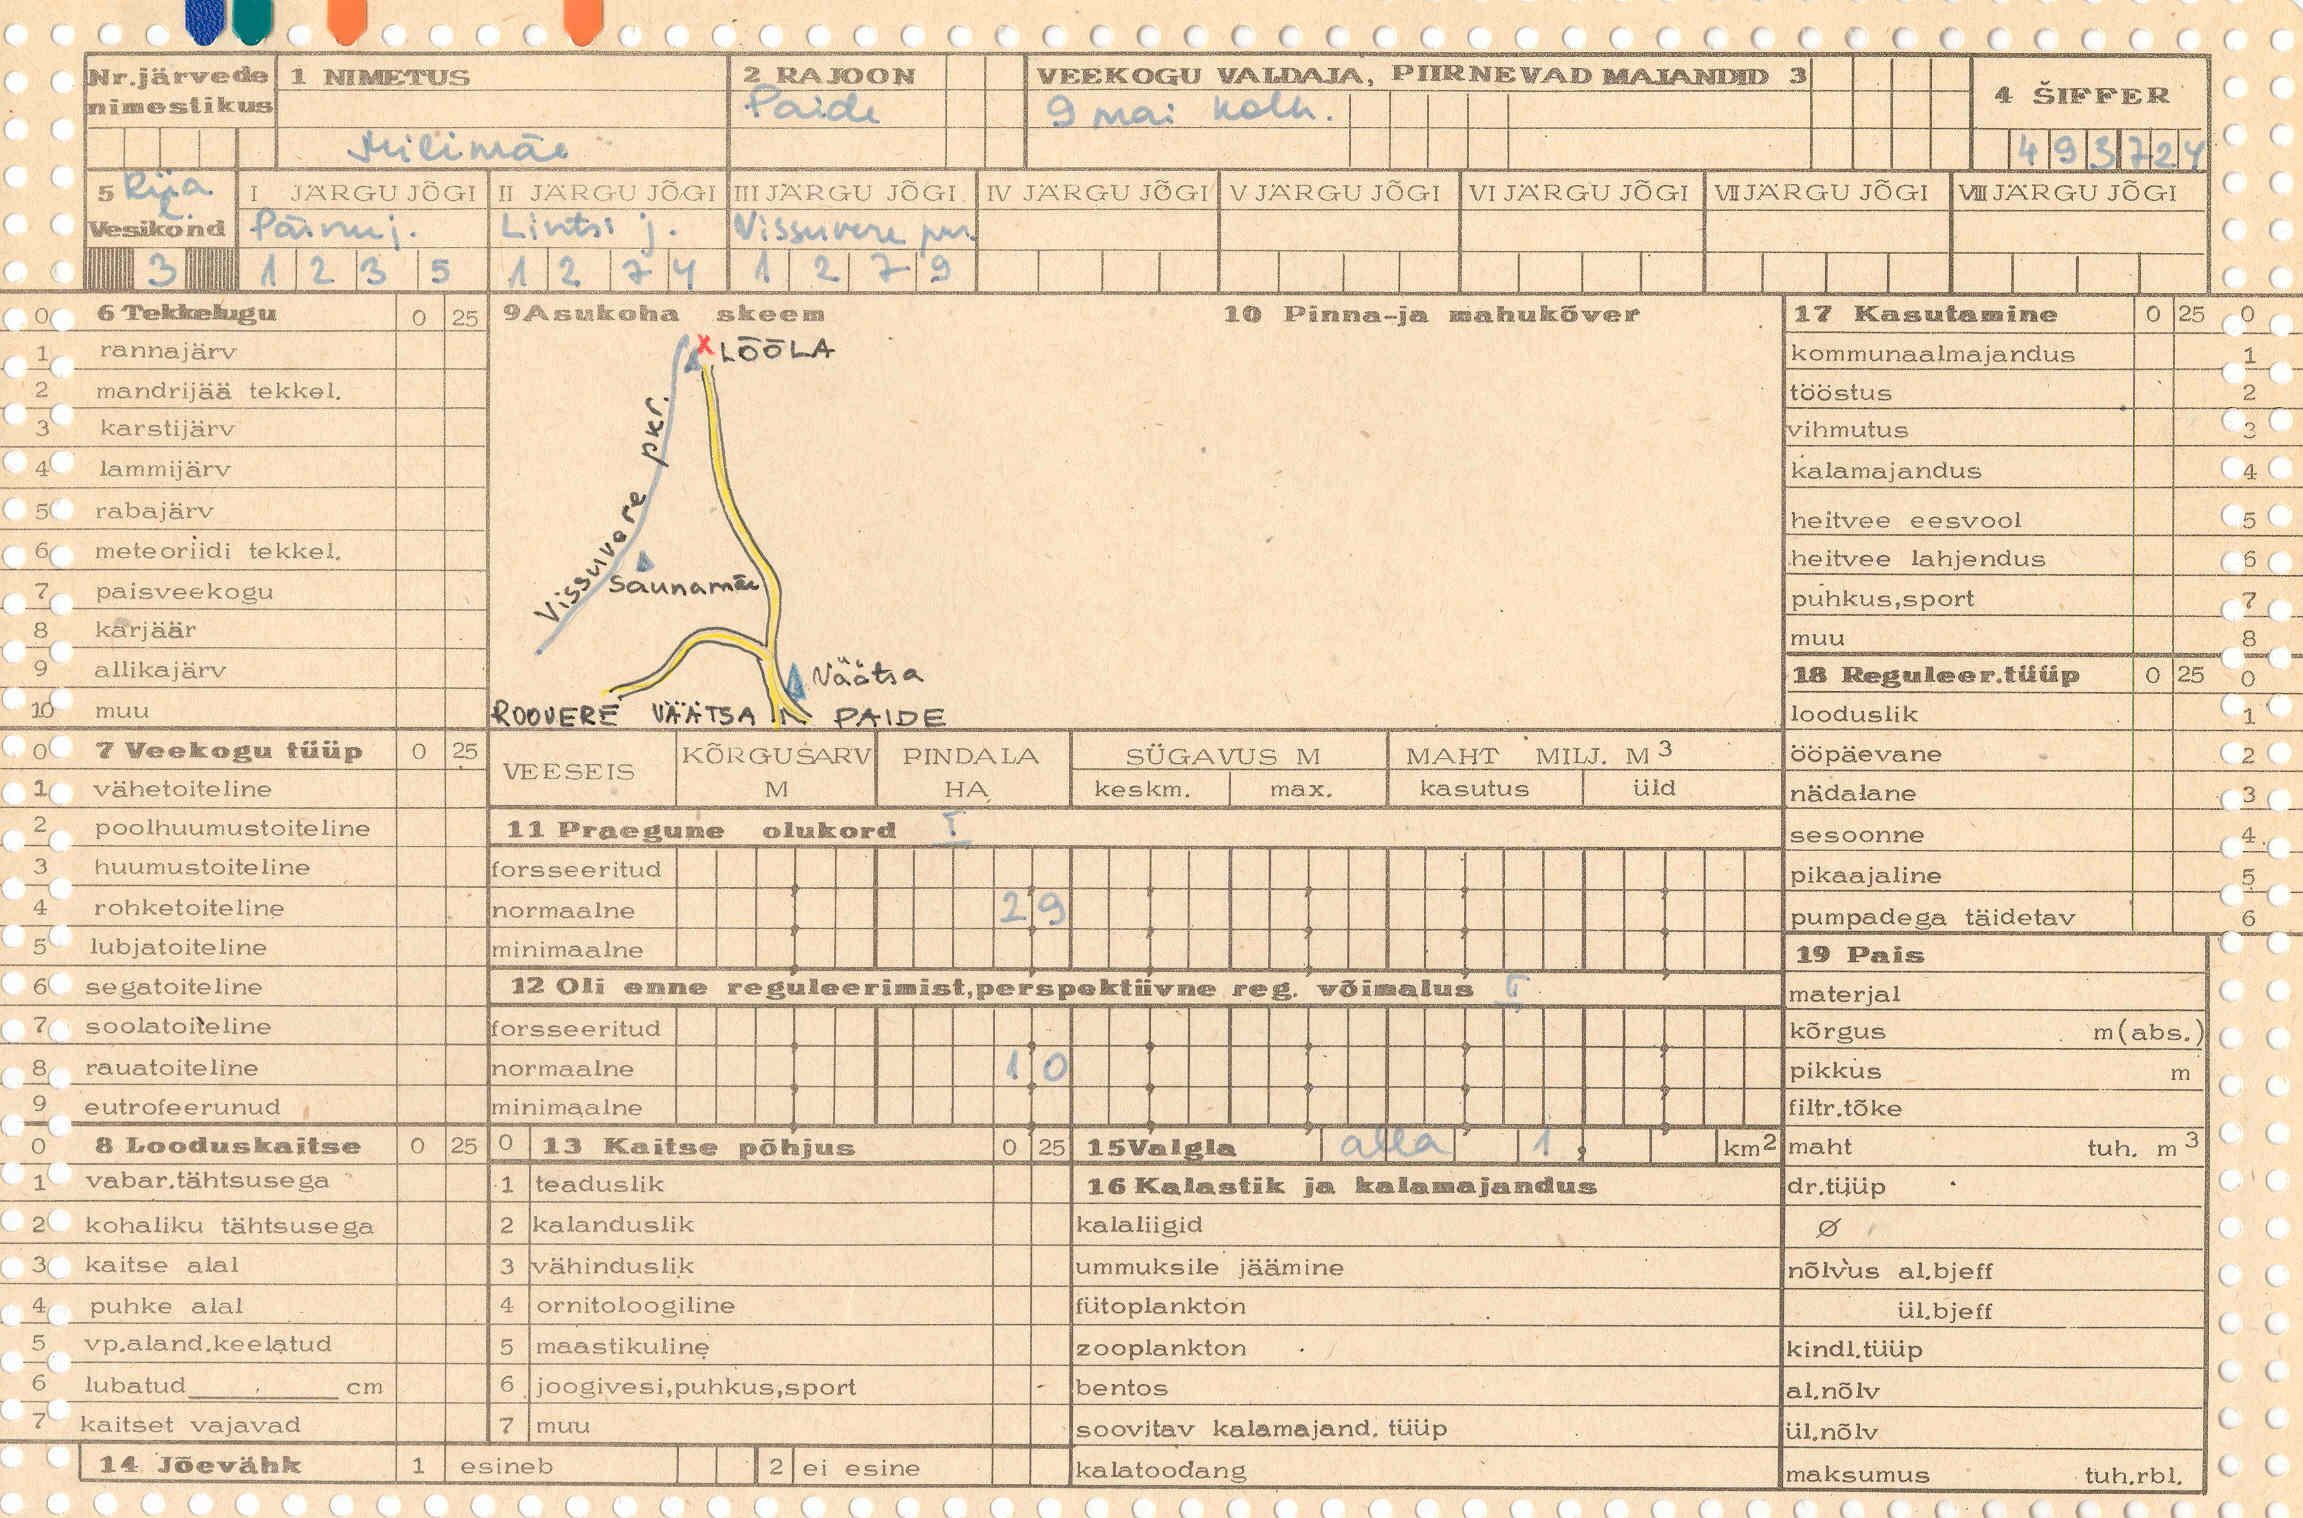 Nr.järvede nimestikus
1 NIMETUS
Milimäe
2 RAJOON
Paide
VEEKOGU VALDAJA, PIIRNEVAD MAJANDID 3
9 mai kolh.
4 ŠIFFER
493724
5 Riia l.
Vesikond
3
I JÄRGU JÕGI
Pärnu j.
1 2 3 5
II JÄRGU JÕGI
Lintsi j.
1 2 7 4
III JÄRGU JÕGI
Vissuvere pkr.
1 2 7 9
IV JÄRGU JÕGI
V JÄRGU JÕGI
VI JÄRGU JÕGI
VII JÄRGU JÕGI
VIII JÄRGU JÕGI
0 6 Tekkelugu 0 25
1 rannajärv
2 mandrijää tekkel.
3 karstijärv
4 lammijärv
5 rabajärv
6 meteoriidi tekkel.
7 paisveekogu
8 karjäär
9 allikajärv
10 muu
0 7 Veekogu tüüp 0 25
1 vähetoiteline
2 poolhuumustoiteline
3 huumustoiteline
4 rohketoiteline
5 lubjatoiteline
6 segatoiteline
7 soolatoiteline
8 rauatoiteline
9 eutrofeerunud
0 8 Looduskaitse 0 25
1 vabar.tähtsusega
2 kohaliku tähtsusega
3 kaitse alal
4 puhke alal
5 vp.aland.keelatud
6 lubatud cm
7 kaitset vajavad
9 Asukoha skeem
X LÕÕLA
Vissuvere pkr.
Saunamäe
Väätsa
ROOVERE VÄÄTSA PAIDE
10 Pinna-ja mahukõver
VEESEIS
KÕRGUSARV M
PINDALA HA
SÜGAVUS M
keskm. max.
MAHT MILJ. M3
kasutus üld
11 Praegune olukord I
forsseeritud
normaalne 29
minimaalne
12 Oli enne reguleerimist,perspektiivne reg. võimalus I
forsseeritud
normaalne 10
minimaalne
0 13 Kaitse põhjus 0 25
1 teaduslik
2 kalanduslik
3 vähinduslik
4 ornitoloogiline
5 maastikuline
6 joogivesi,puhkus,sport
7 muu
14 Jõevähk 1 esineb 2 ei esine
15 Valgla alla 1, km2
16 Kalastik ja kalamajandus
kalaliigid
ummuksile jäämine
fütoplankton
zooplankton
bentos
soovitav kalamajand. tüüp
kalatoodang
17 Kasutamine 0 25 0
kommunaalmajandus 1
tööstus 2
vihmutus 3
kalamajandus 4
heitvee eesvool 5
heitvee lahjendus 6
puhkus,sport 7
muu 8
18 Reguleer.tüüp 0 25 0
looduslik 1
ööpäevane 2
nädalane 3
sesoonne 4
pikaajaline 5
pumpadega täidetav 6
19 Pais
materjal
kõrgus m(abs.)
pikkus m
filtr.tõke
maht tuh. m3
dr.tüüp
Ø
nõlvus al.bjeff
ül.bjeff
kindl.tüüp
al.nõlv
ül.nõlv
maksumus tuh.rbl.